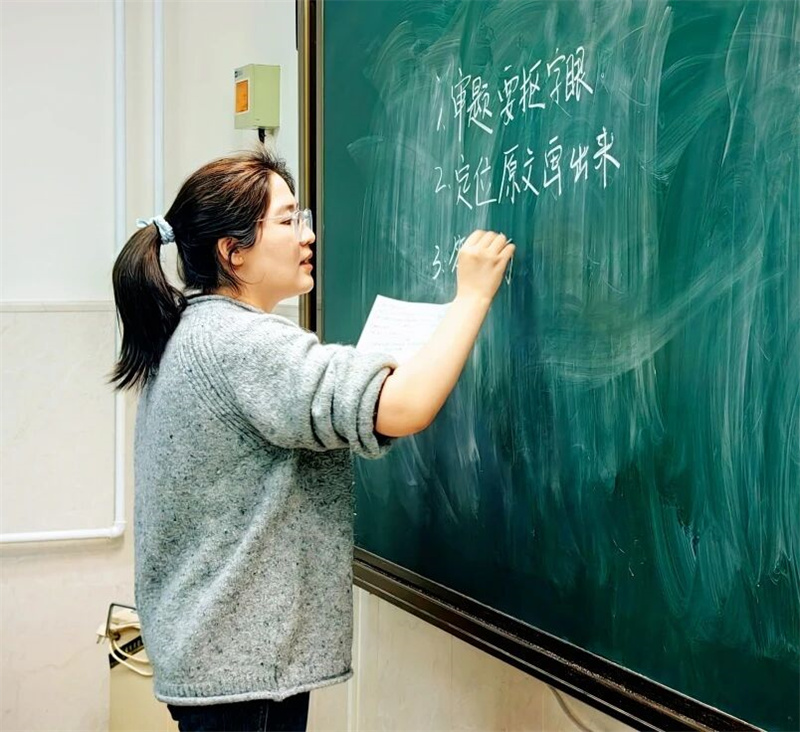 1.审题要抠字眼
2.定位原文画出来
3.